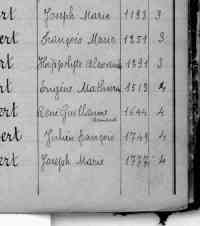 ert Joseph Marie 1193 3
bert François Marie 1251 3
ert Hippolyte 1291 3
ert Eugène Mathurin 1513 4
ert René Guillaume 1644 4
bert Julien François 1749 4
ert Joseph Marie 1777 4